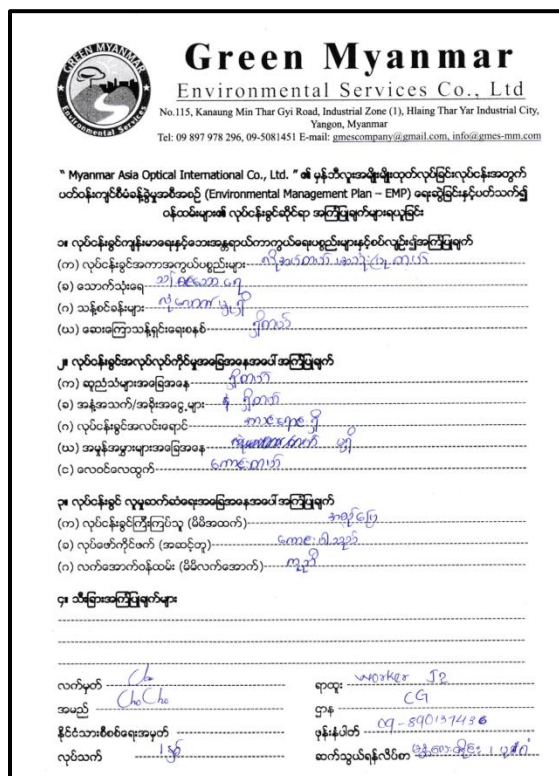 GREEN MYANMAR
Environmental Services
Green Myanmar
Environmental Services Co., Ltd
No.115, Kanaung Min Thar Gyi Road, Industrial Zone (1), Hlaing Thar Yar Industrial City,
Yangon, Myanmar
Tel: 09 897 978 296, 09-5081451 E-mail: gmescompany@gmail.com, info@gmes-mm.com
“ Myanmar Asia Optical International Co., Ltd. ” ၏ မှန်ဘီလူးအမျိုးမျိုးထုတ်လုပ်ခြင်းလုပ်ငန်းအတွက်
ပတ်ဝန်းကျင်စီမံခန့်ခွဲမှုအစီအစဉ် (Environmental Management Plan – EMP) ရေးဆွဲခြင်းနှင့်ပတ်သက်၍
ဝန်ထမ်းများ၏ လုပ်ငန်းခွင်ဆိုင်ရာ အကြံပြုချက်များရယူခြင်း
၁။ လုပ်ငန်းခွင်ကျန်းမာရေးနှင့်ဘေးအန္တရာယ်ကာကွယ်ရေးပစ္စည်းများနှင့်စပ်လျဉ်း၍အကြံပြုချက်
(က) လုပ်ငန်းခွင်အကာအကွယ်ပစ္စည်းများ
(ခ) သောက်သုံးရေ သန့်စင်သော ရေ
(ဂ) သန့်စင်ခန်းများ ရှိ
(ဃ) ဆေးကြောသန့်ရှင်းရေးစနစ် ရှိတယ်
၂။ လုပ်ငန်းခွင်အလုပ်လုပ်ကိုင်မှုအခြေအနေအပေါ် အကြံပြုချက်
(က) ဆူညံသံများအခြေအနေ ရှိတယ်
(ခ) အနံ့အသက်/အခိုးအငွေ့များ ရှိတယ်
(ဂ) လုပ်ငန်းခွင်အလင်းရောင် အလင်းရောင် ရှိ
(ဃ) အမှုန်အမွှားများအခြေအနေ မရှိ
(င) လေဝင်လေထွက် ကောင်းတယ်
၃။ လုပ်ငန်းခွင် လူမှုဆက်ဆံရေးအခြေအနေအပေါ် အကြံပြုချက်
(က) လုပ်ငန်းခွင်ကြီးကြပ်သူ (မိမိအထက်) အဆင်ပြေ
(ခ) လုပ်ဖော်ကိုင်ဖက် (အဆင့်တူ) ကောင်းပါသည်
(ဂ) လက်အောက်ဝန်ထမ်း (မိမိလက်အောက်) ကူညီ
၄။ သီးခြားအကြံပြုချက်များ
လက်မှတ် Cho
ရာထူး worker J2
အမည် ChoCho
ဌာန CG
နိုင်ငံသားစိစစ်ရေးအမှတ်
ဖုန်းနံပါတ် 09-890137436
လုပ်သက် ၁နှစ်
ဆက်သွယ်ရန်လိပ်စာ